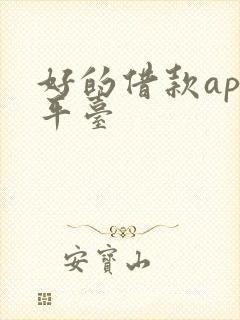 好的借款ap
平臺
安寶山